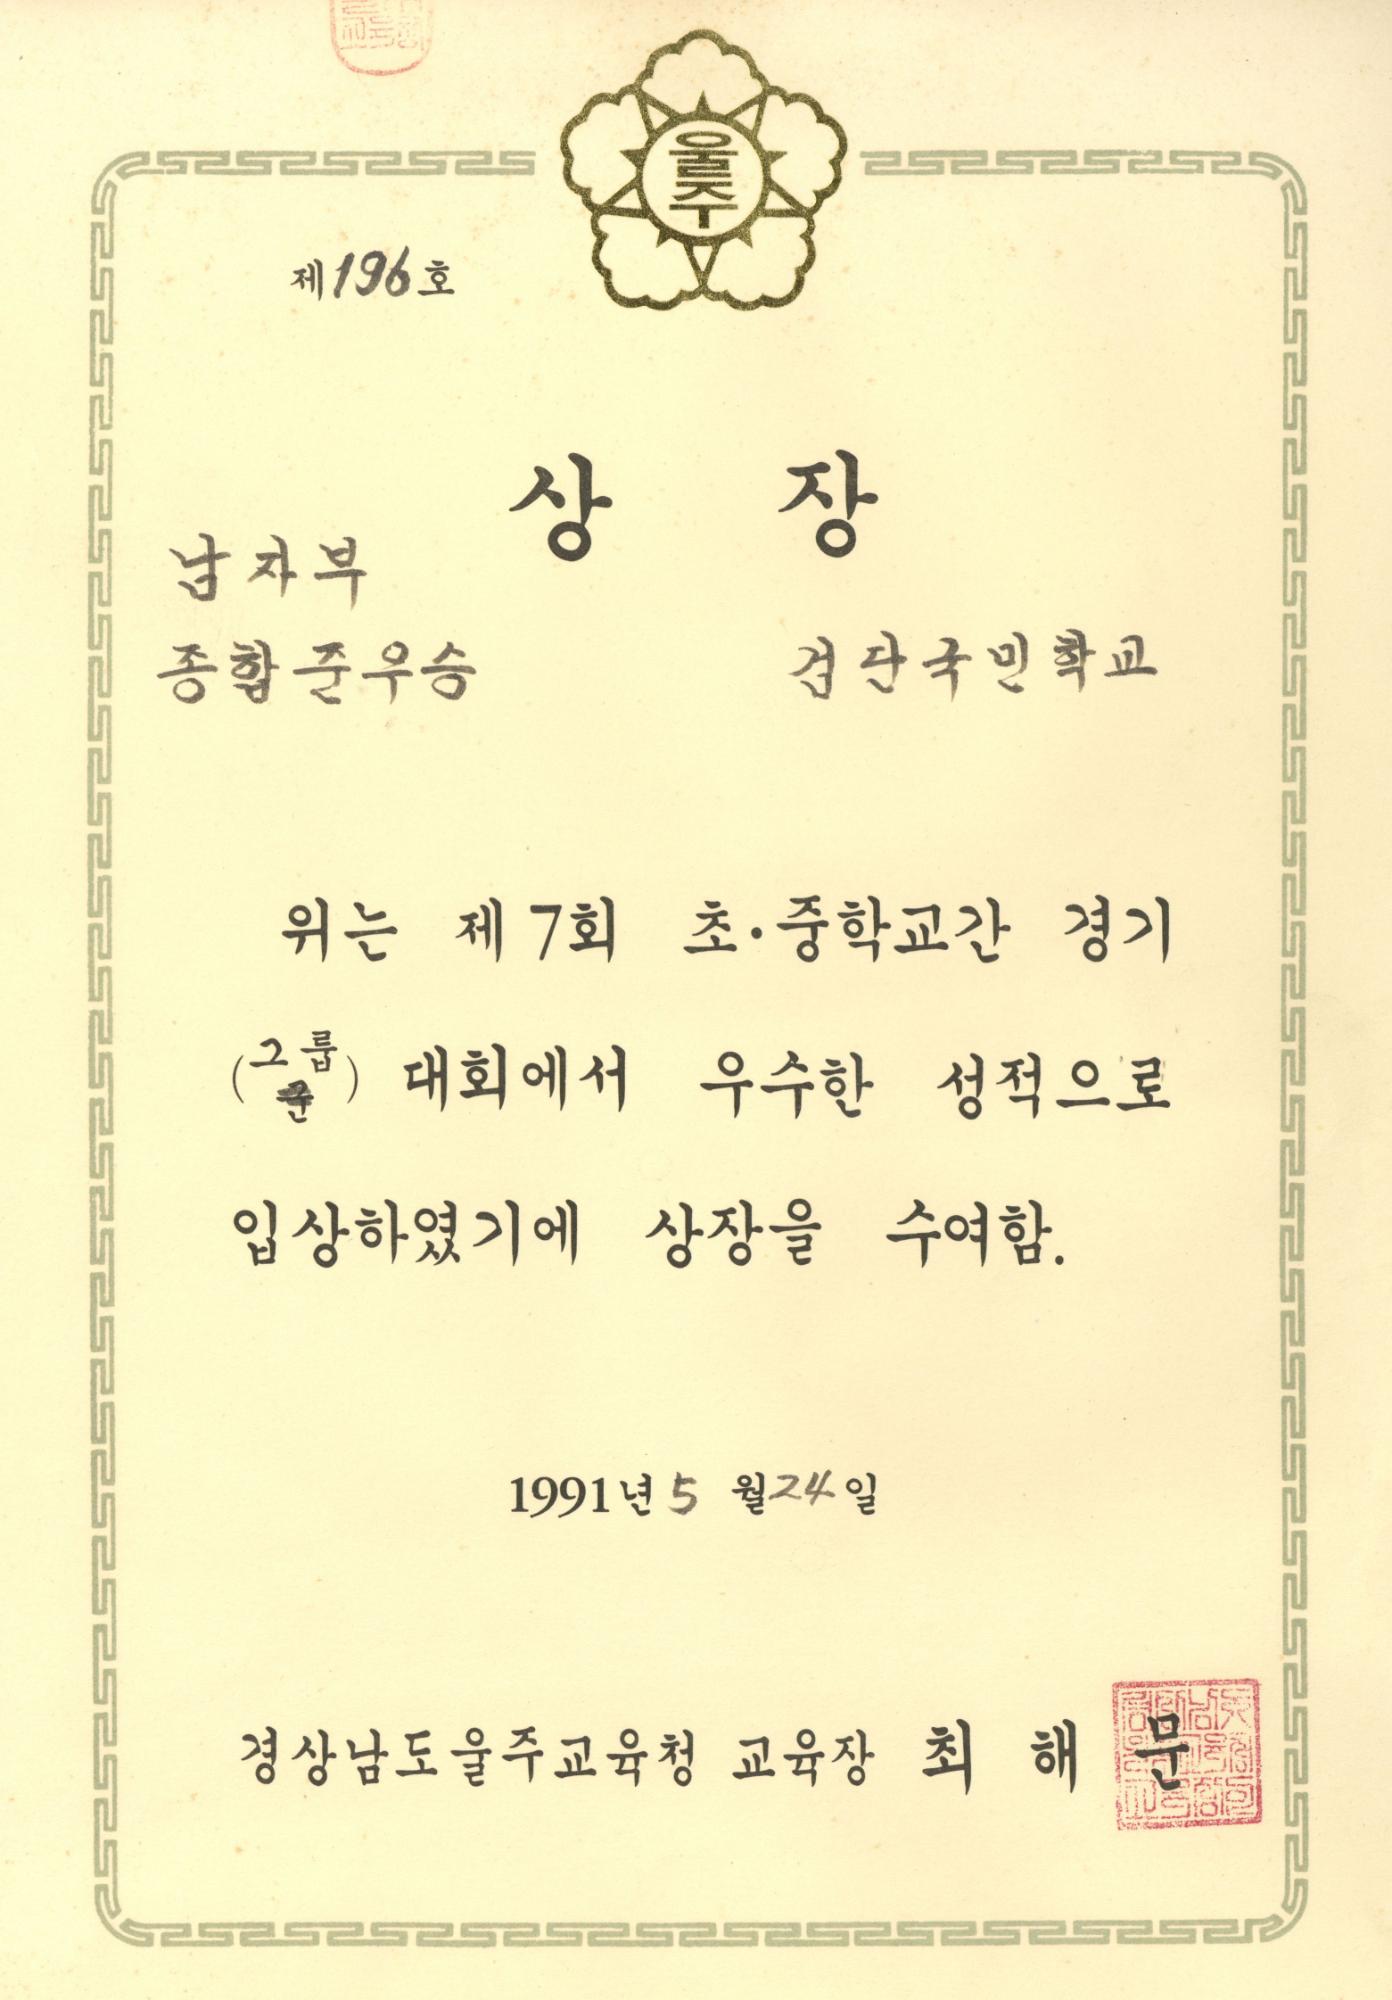 울주
제196호
상 장
남자부
종합준우승
검단국민학교
위는 제7회 초·중학교간 경기
(그룹) 대회에서 우수한 성적으로
입상하였기에 상장을 수여함.
1991년 5월 24일
경상남도울주교육청 교육장 최해문